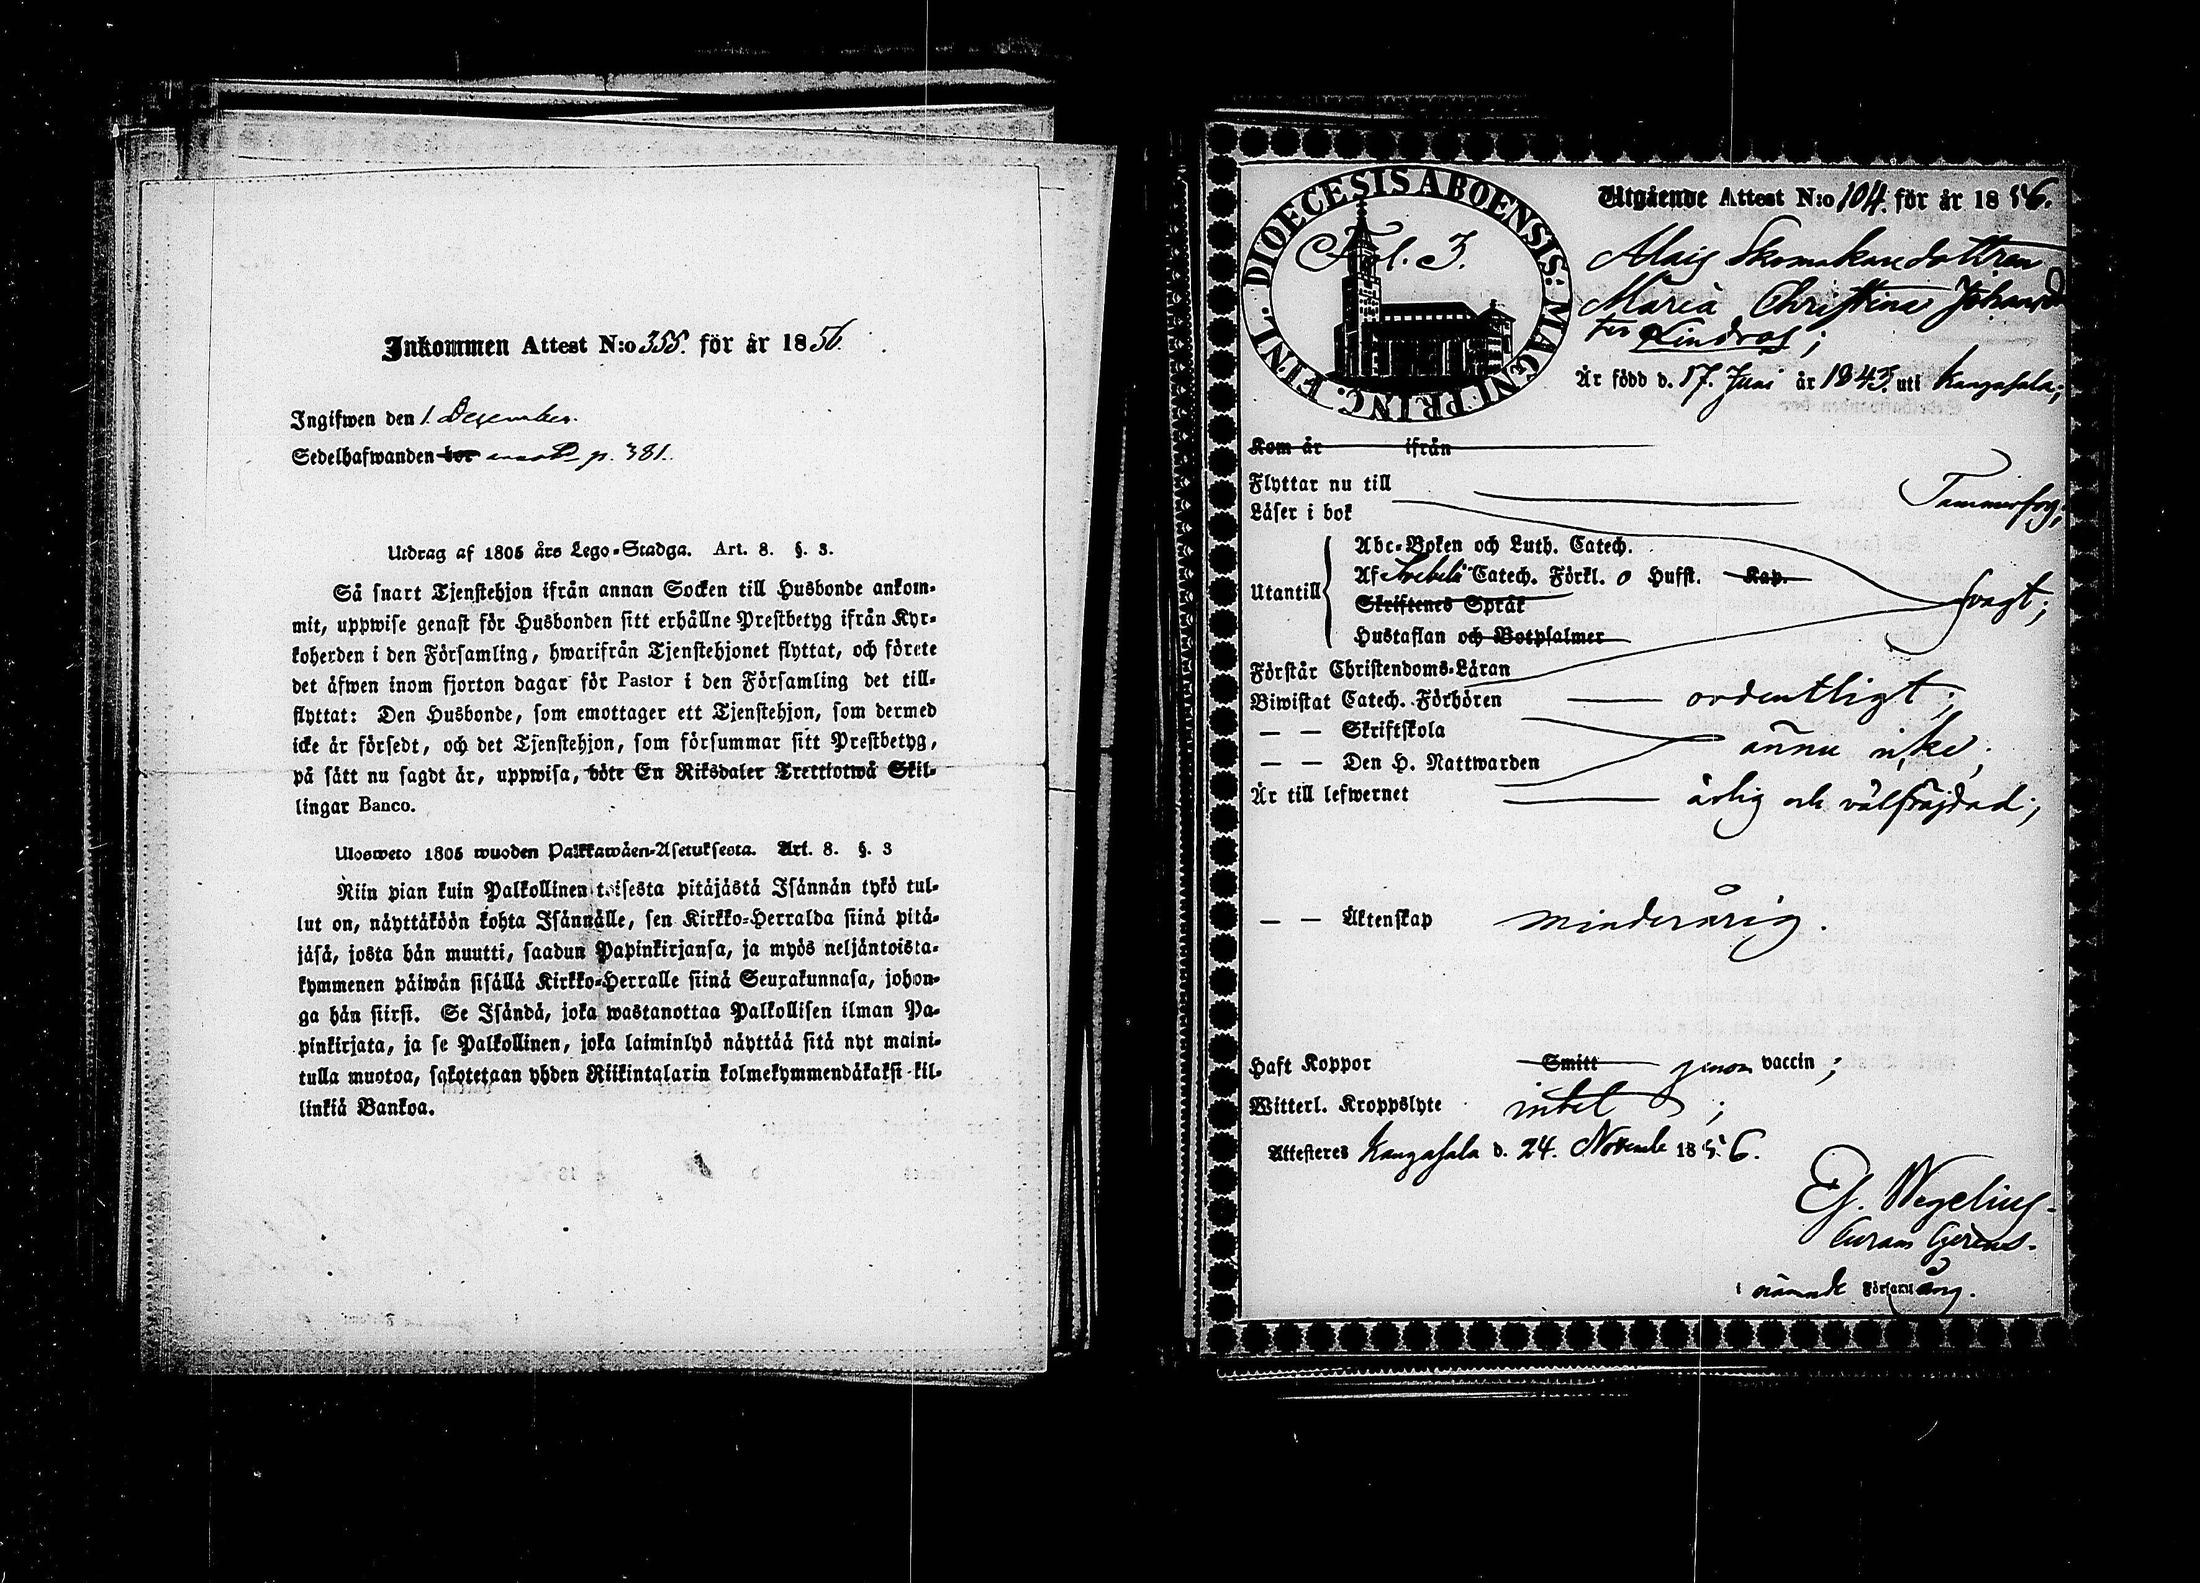 Inkommen Attest N:o 355. för år 1856.
Ingifwen den 1. December.
Sedelhafwanden bor p. 381.
Utdrag af 1805 års Lego-Stadga. Art. 8. §. 3.
Så snart Tjenstehjon ifrån annan Socken till Husbonde ankom-
mit, uppwise genast för Husbonden sitt erhållne Prestbetyg ifrån Kyr-
koherden i den Församling, hwarifrån Tjenstehjonet flyttat, och förete
det äfwen inom fjorton dagar för Pastor i den Församling det till-
flyttat: Den Husbonde, som emottager ett Tjenstehjon, som dermed
icke är försedt, och det Tjenstehjon, som försummar sitt Prestbetyg,
på sätt nu sagdt är, uppwisa, böte En Riksdaler Trettiotwå Skil-
lingar Banco.
Ulosweto 1805 wuoden Palkkawäen-Asetuksesta. Art. 8. §. 3
Niin pian kuin Palkollinen toisesta pitäjästä Isännän tykö tul-
lut on, näyttäköön kohta Isännälle, sen Kirkko-Herralda siinä pitä-
jäsä, josta hän muutti, saadun Papinkirjansa, ja myös neljäntoista-
kymmenen päiwän sisällä Kirkko-Herralle siinä Seurakunnasa, johon-
ga hän siirsi. Se Isändä, joka wastanottaa Palkollisen ilman Pa-
pinkirjata, ja se Palkollinen, joka laiminlyö näyttää sitä nyt maini-
tulla muotoa, sakotetaan yhden Riikintalarin kolmekymmendäkaksi kil-
linkiä Bankoa.
DIOECESIS ABOENSIS: MAGNI PRINC. FINL.
Fol. 3.
Utgående Attest N:o 104. för år 1856.
Skomakaredottren
Maria Christina Johansd
ter Lindros;
Är född d. 17. Juni år 1843. uti Kangasala;
Kom år ifrån
Flyttar nu till Tammerfors;
Läser i bok
Utantill
Abc-Boken och Luth. Catech.
Af Svebelii Catech. Förkl. o Hufst. Kap.
Skriftenes Språk svagt;
Hustaflan och Botpsalmer
Förstår Christendoms-Läran
Biwistat Catech. Förhören ordentligt;
— — Skriftskola ännu icke;
— — Den H. Nattwarden
Är till lefwernet ärlig och välfräjdad;
— — Äktenskap minderårig.
Haft Koppor Smitt genom vaccin;
Witterl. Kroppslyte intet;
Attesteres Kangasala d. 24. Novemb 1856.
Wegelius.
Curam Gerens.
i nämnde Församling.